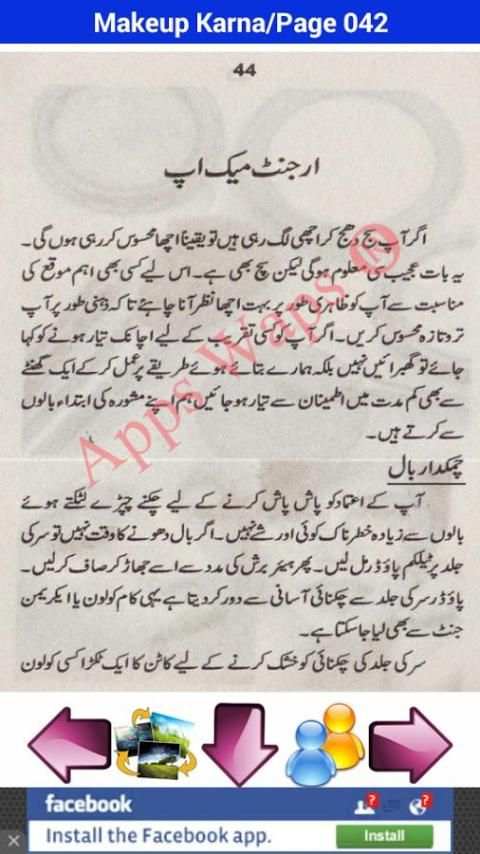 Makeup Karna/Page 042
44
ارجنٹ میک اپ
اگر آپ سج دھج کر اچھی لگ رہی ہیں تو یقیناً اچھا محسوس کر رہی ہوں گی۔
یہ بات عجیب سی معلوم ہوگی لیکن سچ بھی ہے۔ اس لیے کسی بھی اہم موقع کی
مناسبت سے آپ کو ظاہری طور پر بہت اچھا نظر آنا چاہئے تاکہ ذہنی طور پر آپ
تروتازہ محسوس کریں۔ اگر آپ کو کسی تقریب کے لیے اچانک تیار ہونے کو کہا
جائے تو گھبرائیں نہیں بلکہ ہمارے بتائے ہوئے طریقے پر عمل کر کے ایک گھنٹے
سے بھی کم مدت میں اطمینان سے تیار ہو جائیں ہم اپنے مشورہ کی ابتداء بالوں
سے کرتے ہیں۔
چمکدار بال
آپ کے اعتماد کو پاش پاش کرنے کے لیے چکنے چپڑے لٹکتے ہوئے
بالوں سے زیادہ خطرناک کوئی اور شے نہیں۔ اگر بال دھونے کا وقت نہیں تو سر کی
جلد پر ٹیلکم پاؤڈر مل لیں۔ پھر ہیئر برش کی مدد سے اسے جھاڑ کر صاف کر لیں۔
پاؤڈر سر کی جلد سے چکنائی آسانی سے دور کر دیتا ہے یہی کام کولون یا ایکریمن
جنٹ سے بھی لیا جا سکتا ہے۔
سر کی جلد کی چکنائی کو خشک کرنے کے لیے کاٹن کا ایک ٹکڑا کسی کولون
Apps Waps ®
facebook
? ?
Install the Facebook app.
Install